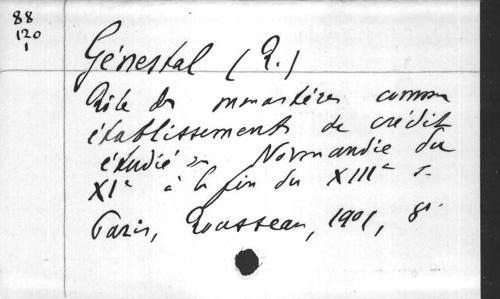 88
120
1
Génestal (R.)
Rôle des monastères comme
établissements de crédit
étudié en Normandie du
XIe à la fin du XIIIe s.
Paris, Rousseau, 1901, 8°.